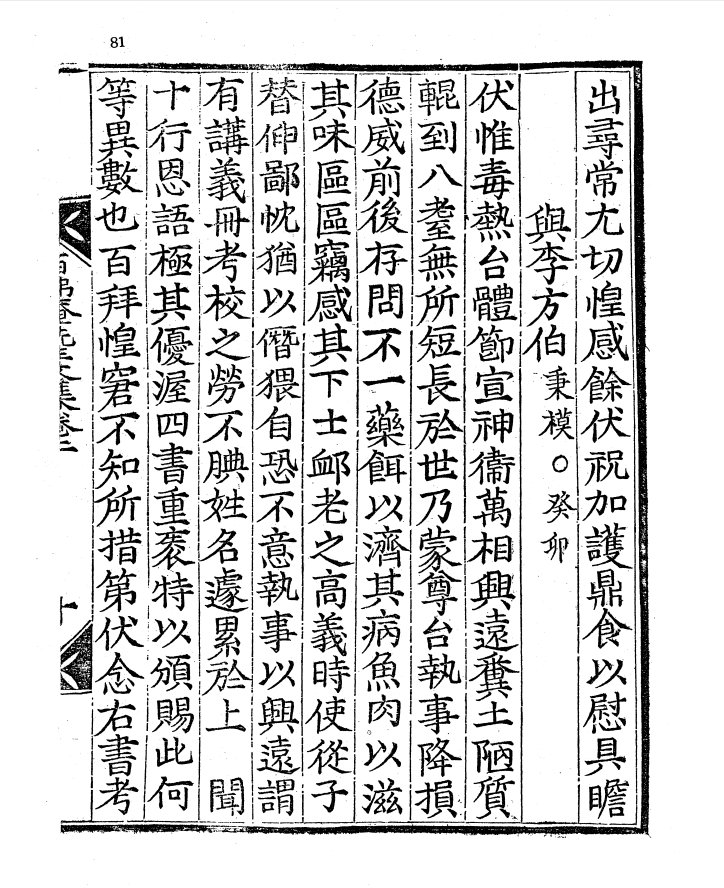 81
出尋常尤切惶感餘伏祝加護鼎食以慰具瞻
與李方伯秉模○癸卯
伏惟毒熱台體節宣神衞萬相興遠糞土陋質
輥到八耋無所短長於世乃蒙尊台執事降損
德威前後存問不一藥餌以濟其病魚肉以滋
其味區區竊感其下士卹老之高義時使從子
替伸鄙忱猶以僭猥自恐不意執事以興遠謂
有講義冊考校之勞不腆姓名遽累於上 聞
十行恩語極其優渥四書重袠特以頒賜此何
等異數也百拜惶窘不知所措第伏念右書考
百弗菴先生文集卷二
十